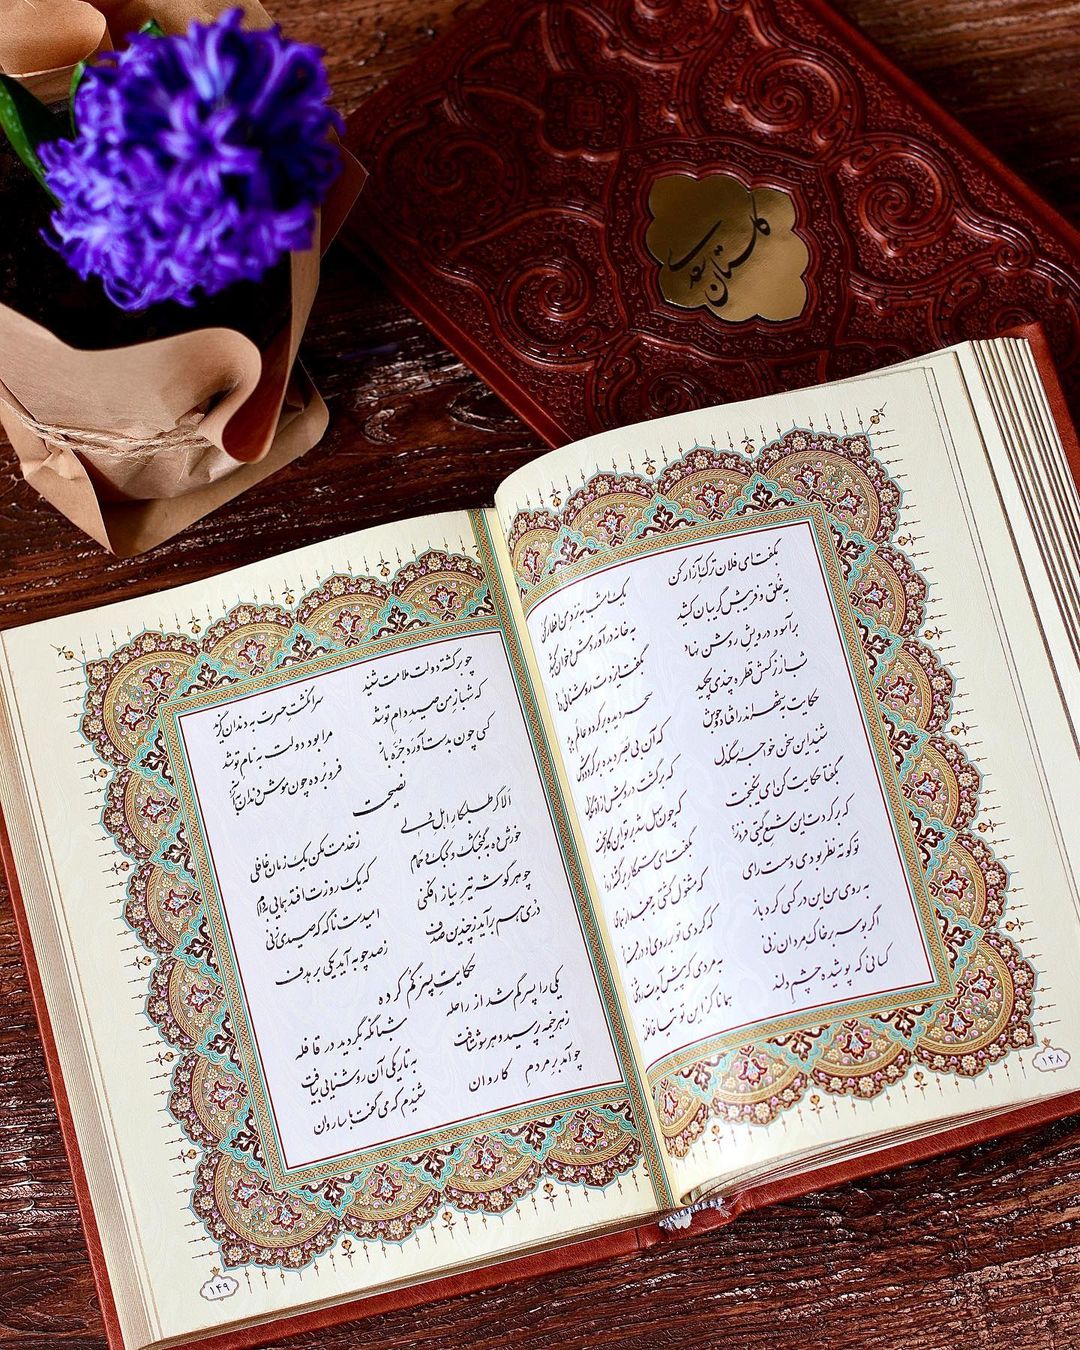 گلستان سعدی
بگفت ای فلان ترک آزار کن
یک امشب به نزد من افطار کن
به خُلق و فریبش گریبان کشید
به خانه درآوردش و خوان کشید
برآسود درویش روشن نهاد
بگفت ایزدت روشنایی دهاد
شب از نرگسش قطره چندی چکید
سحر دیده بر کرد و عالم بدید
حکایت به شهر اندر افتاد و جوش
که آن بی بصر دیده بر کرد دوش
شنید این سخن خواجهٔ سنگدل
که برگشت درویش از او تنگدل
بگفتا حکایت کن ای نیکبخت
که چون سهل شد بر تو این کار سخت
که بر کردت این شمع گیتی فروز
بگفت ای ستمکار برگشته روز
تو کوته نظر بودی و سست رای
که مشغول گشتی به جغد از همای
به روی من این در کسی کرد باز
که کردی تو بر روی او در فراز
اگر بوسه بر خاک مردان زنی
به مردی که پیش آیدت روشنی
کسانی که پوشیده چشم دلند
همانا کز این توتیا غافلند
۱۴۸
چو برگشته دولت ملامت شنید
سر انگشت حسرت به دندان گزید
که شهباز من صید دام تو شد
مرا بود دولت به نام تو شد
کسی چون بدست آورد جرّه باز
فرو برده چون موش دندان به آز
نصیحت
الا گر طلبکار اهل دلی
ز خدمت مکن یک زمان غافلی
خورش ده به گنجشک و کبک و حمام
که یک روزت افتد همایی به دام
چو هر گوشه تیر نیاز افکنی
امیدست ناگه که صیدی زنی
دُری هم برآید ز چندین صدف
ز صد چوبه آید یکی بر هدف
حکایت پسر گم کرده
یکی را پسر گم شد از راحله
شبانگه بگردید در قافله
ز هر خیمه پرسید و هر سو شتافت
به تاریکی آن روشنایی بیافت
چو آمد بر مردم کاروان
شنیدم که می گفت با ساروان
۱۴۹